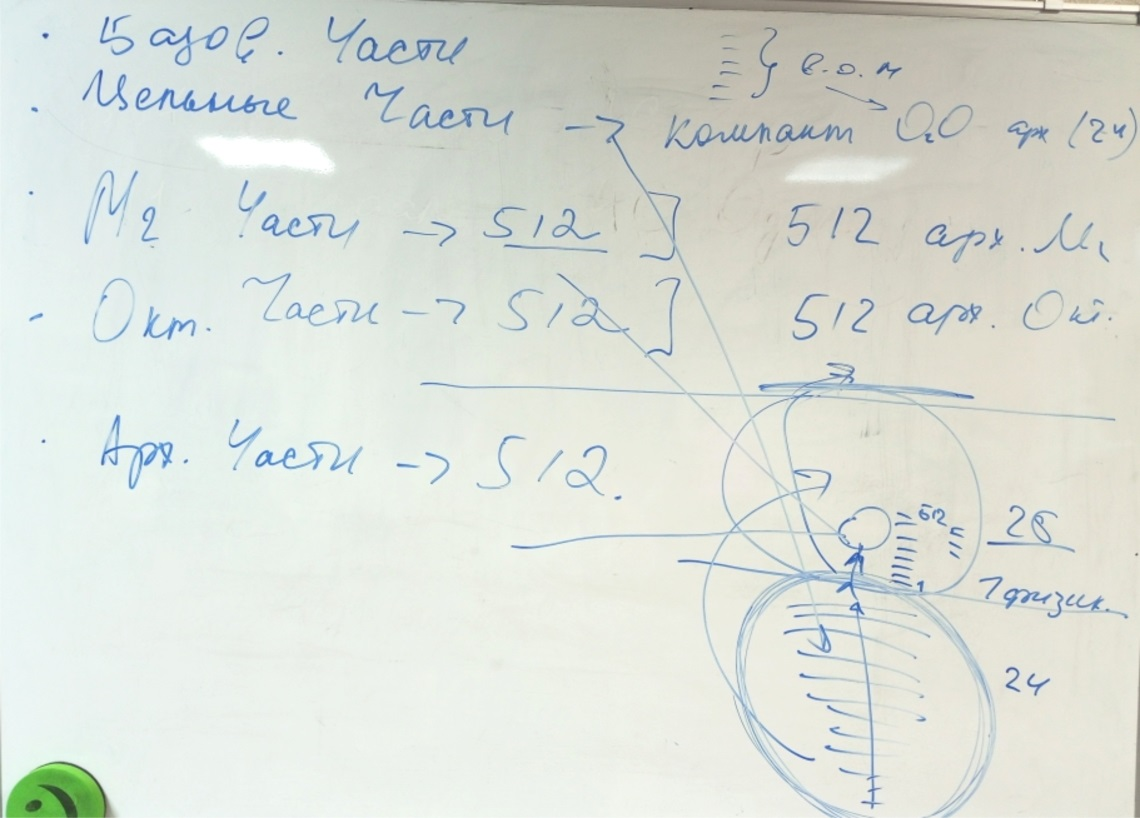 · Базов. Части
· Цельные Части →
в.о.м
Компакт О₂О арх (24)
· М₂ Части → 512 ] 512 арх. М₂
· Окт. Части → 512 ] 512 арх. Окт.
· Арх. Части → 512.
512
1
7 физич.
24